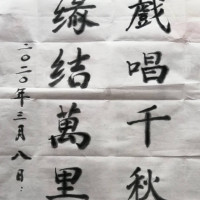 戲唱千秋
缘結萬里
二〇二〇年三月八日